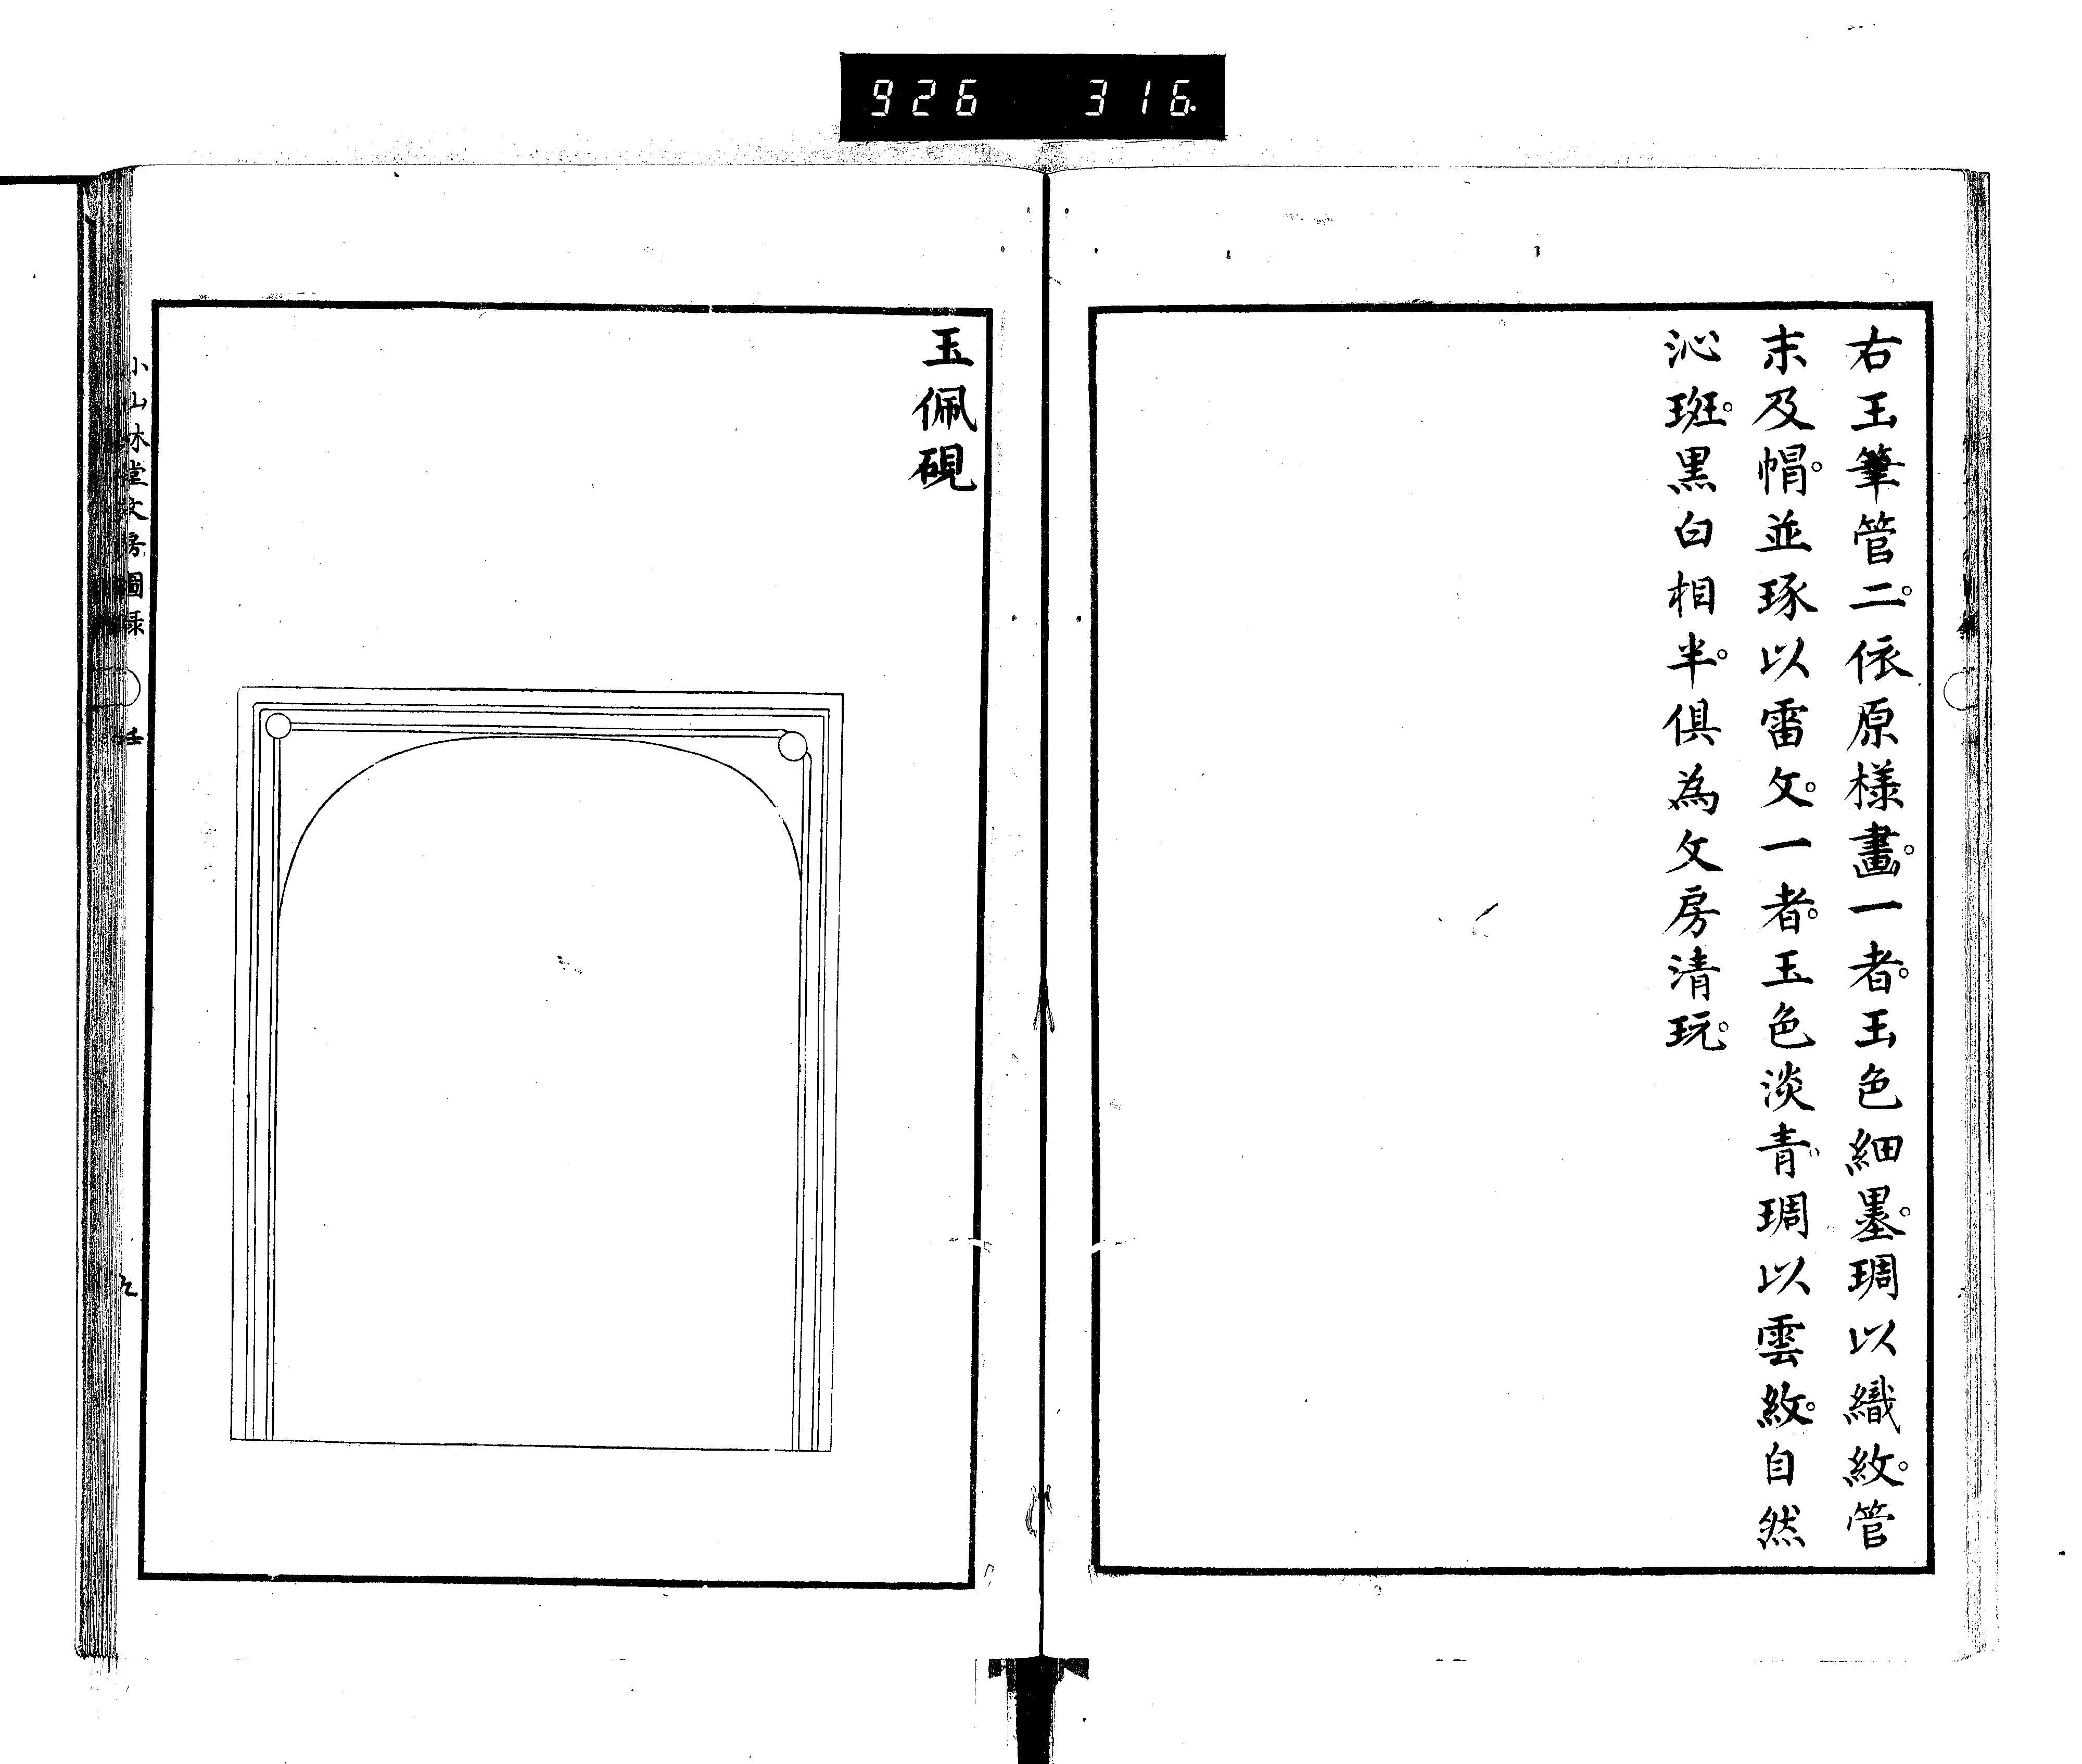 926 316
右玉筆管二。依原樣畫。一者。玉色細墨。琱以織紋。管
末及帽。並琢以雷文。一者。玉色淡青。琱以雲紋。自然
沁斑。黒白相半。俱為文房清玩。
玉佩硯
小山林堂文房圖録